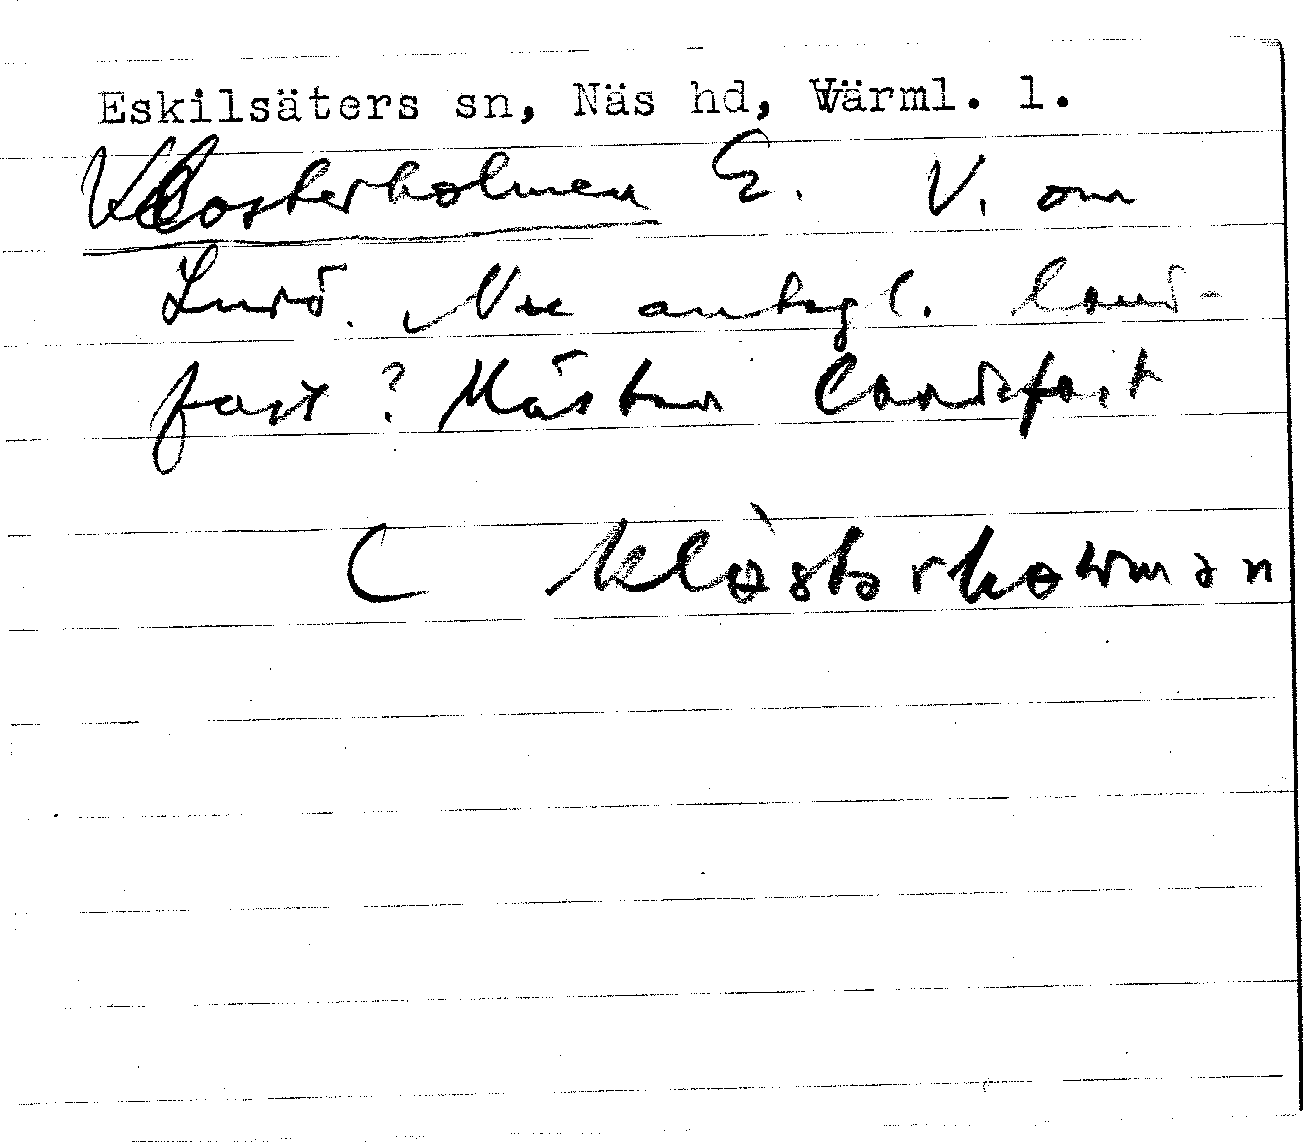 Eskilsäters sn, Näs hd, Wärml. l.
Klosterholmen E. V. om
Lurö. Nu antagl. land-
fast? Nästan landfast
( klòstərholman